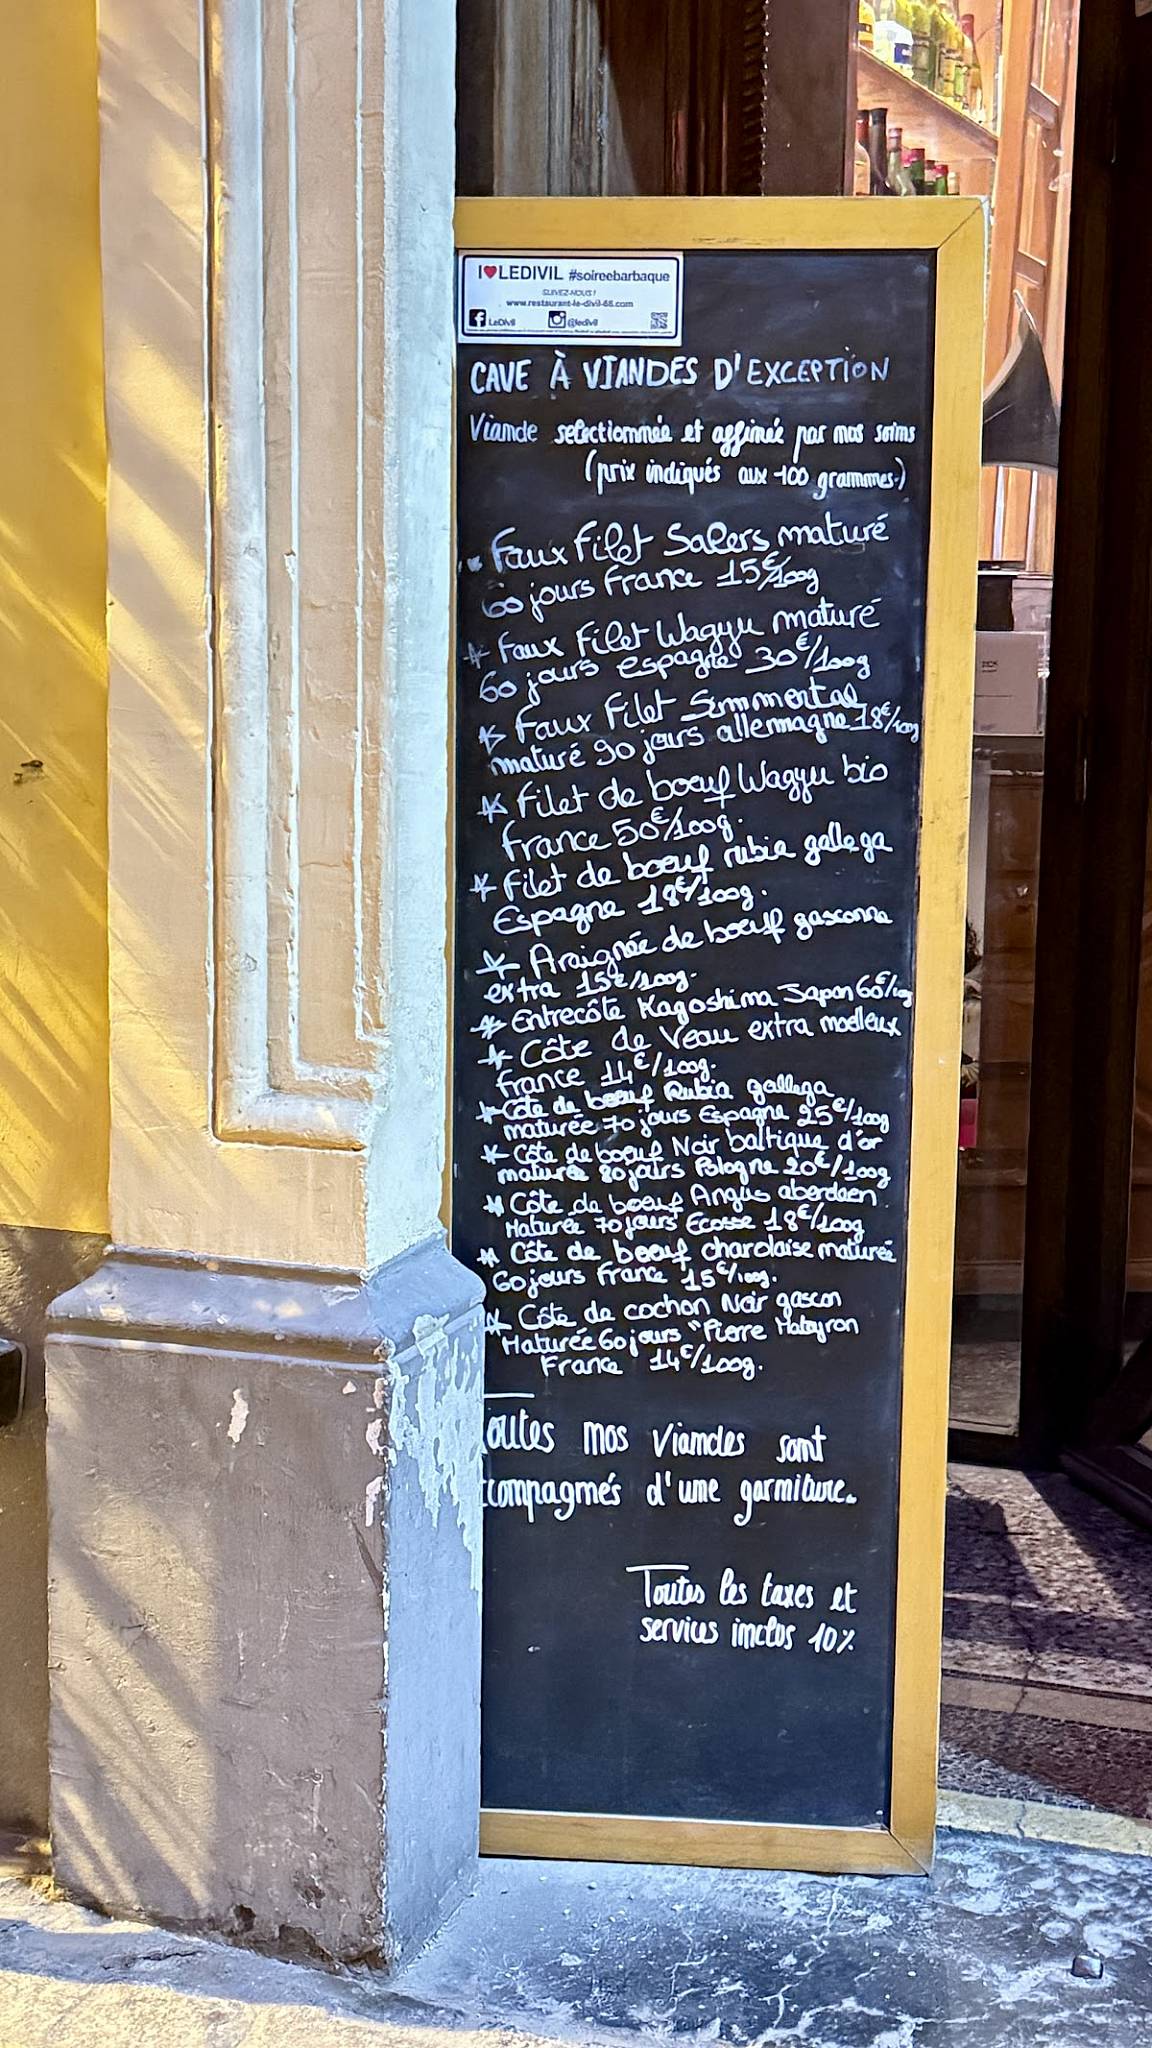 I❤LEDIVIL #soireebarbaque
SUIVEZ-NOUS !
www.restaurant-le-divil-66.com
LeDivil @ledivil
CAVE À VIANDES D'EXCEPTION
Viande selectionnée et affinée par nos soins
(prix indiqués aux 100 grammes)
* Faux Filet Salers maturé
60 jours France 15€/100g
* Faux Filet Wagyu maturé
60 jours espagne 30€/100g
* Faux Filet Simmental
maturé 90 jours allemagne 18€/100g
* Filet de boeuf Wagyu bio
france 50€/100g.
* Filet de boeuf rubia gallega
Espagne 18€/100g.
* Araignée de boeuf gasconne
extra 15€/100g.
* Entrecôte Kagoshima Japon 60€/100g
* Côte de Veau extra moelleux
france 14€/100g.
* Côte de boeuf Rubia gallega
maturée 70 jours Espagne 25€/100g
* Côte de boeuf Noir baltique d'or
maturée 80 jours Pologne 20€/100g
* Côte de boeuf Angus aberdeen
Maturée 70 jours Ecosse 18€/100g
* Côte de boeuf charolaise maturée
60 jours France 15€/100g.
* Côte de cochon Noir gascon
Maturée 60 jours "Pierre Matayron
France 14€/100g.
Toutes nos viandes sont
ccompagnés d'une garniture.
Toutes les taxes et
services inclus 10%